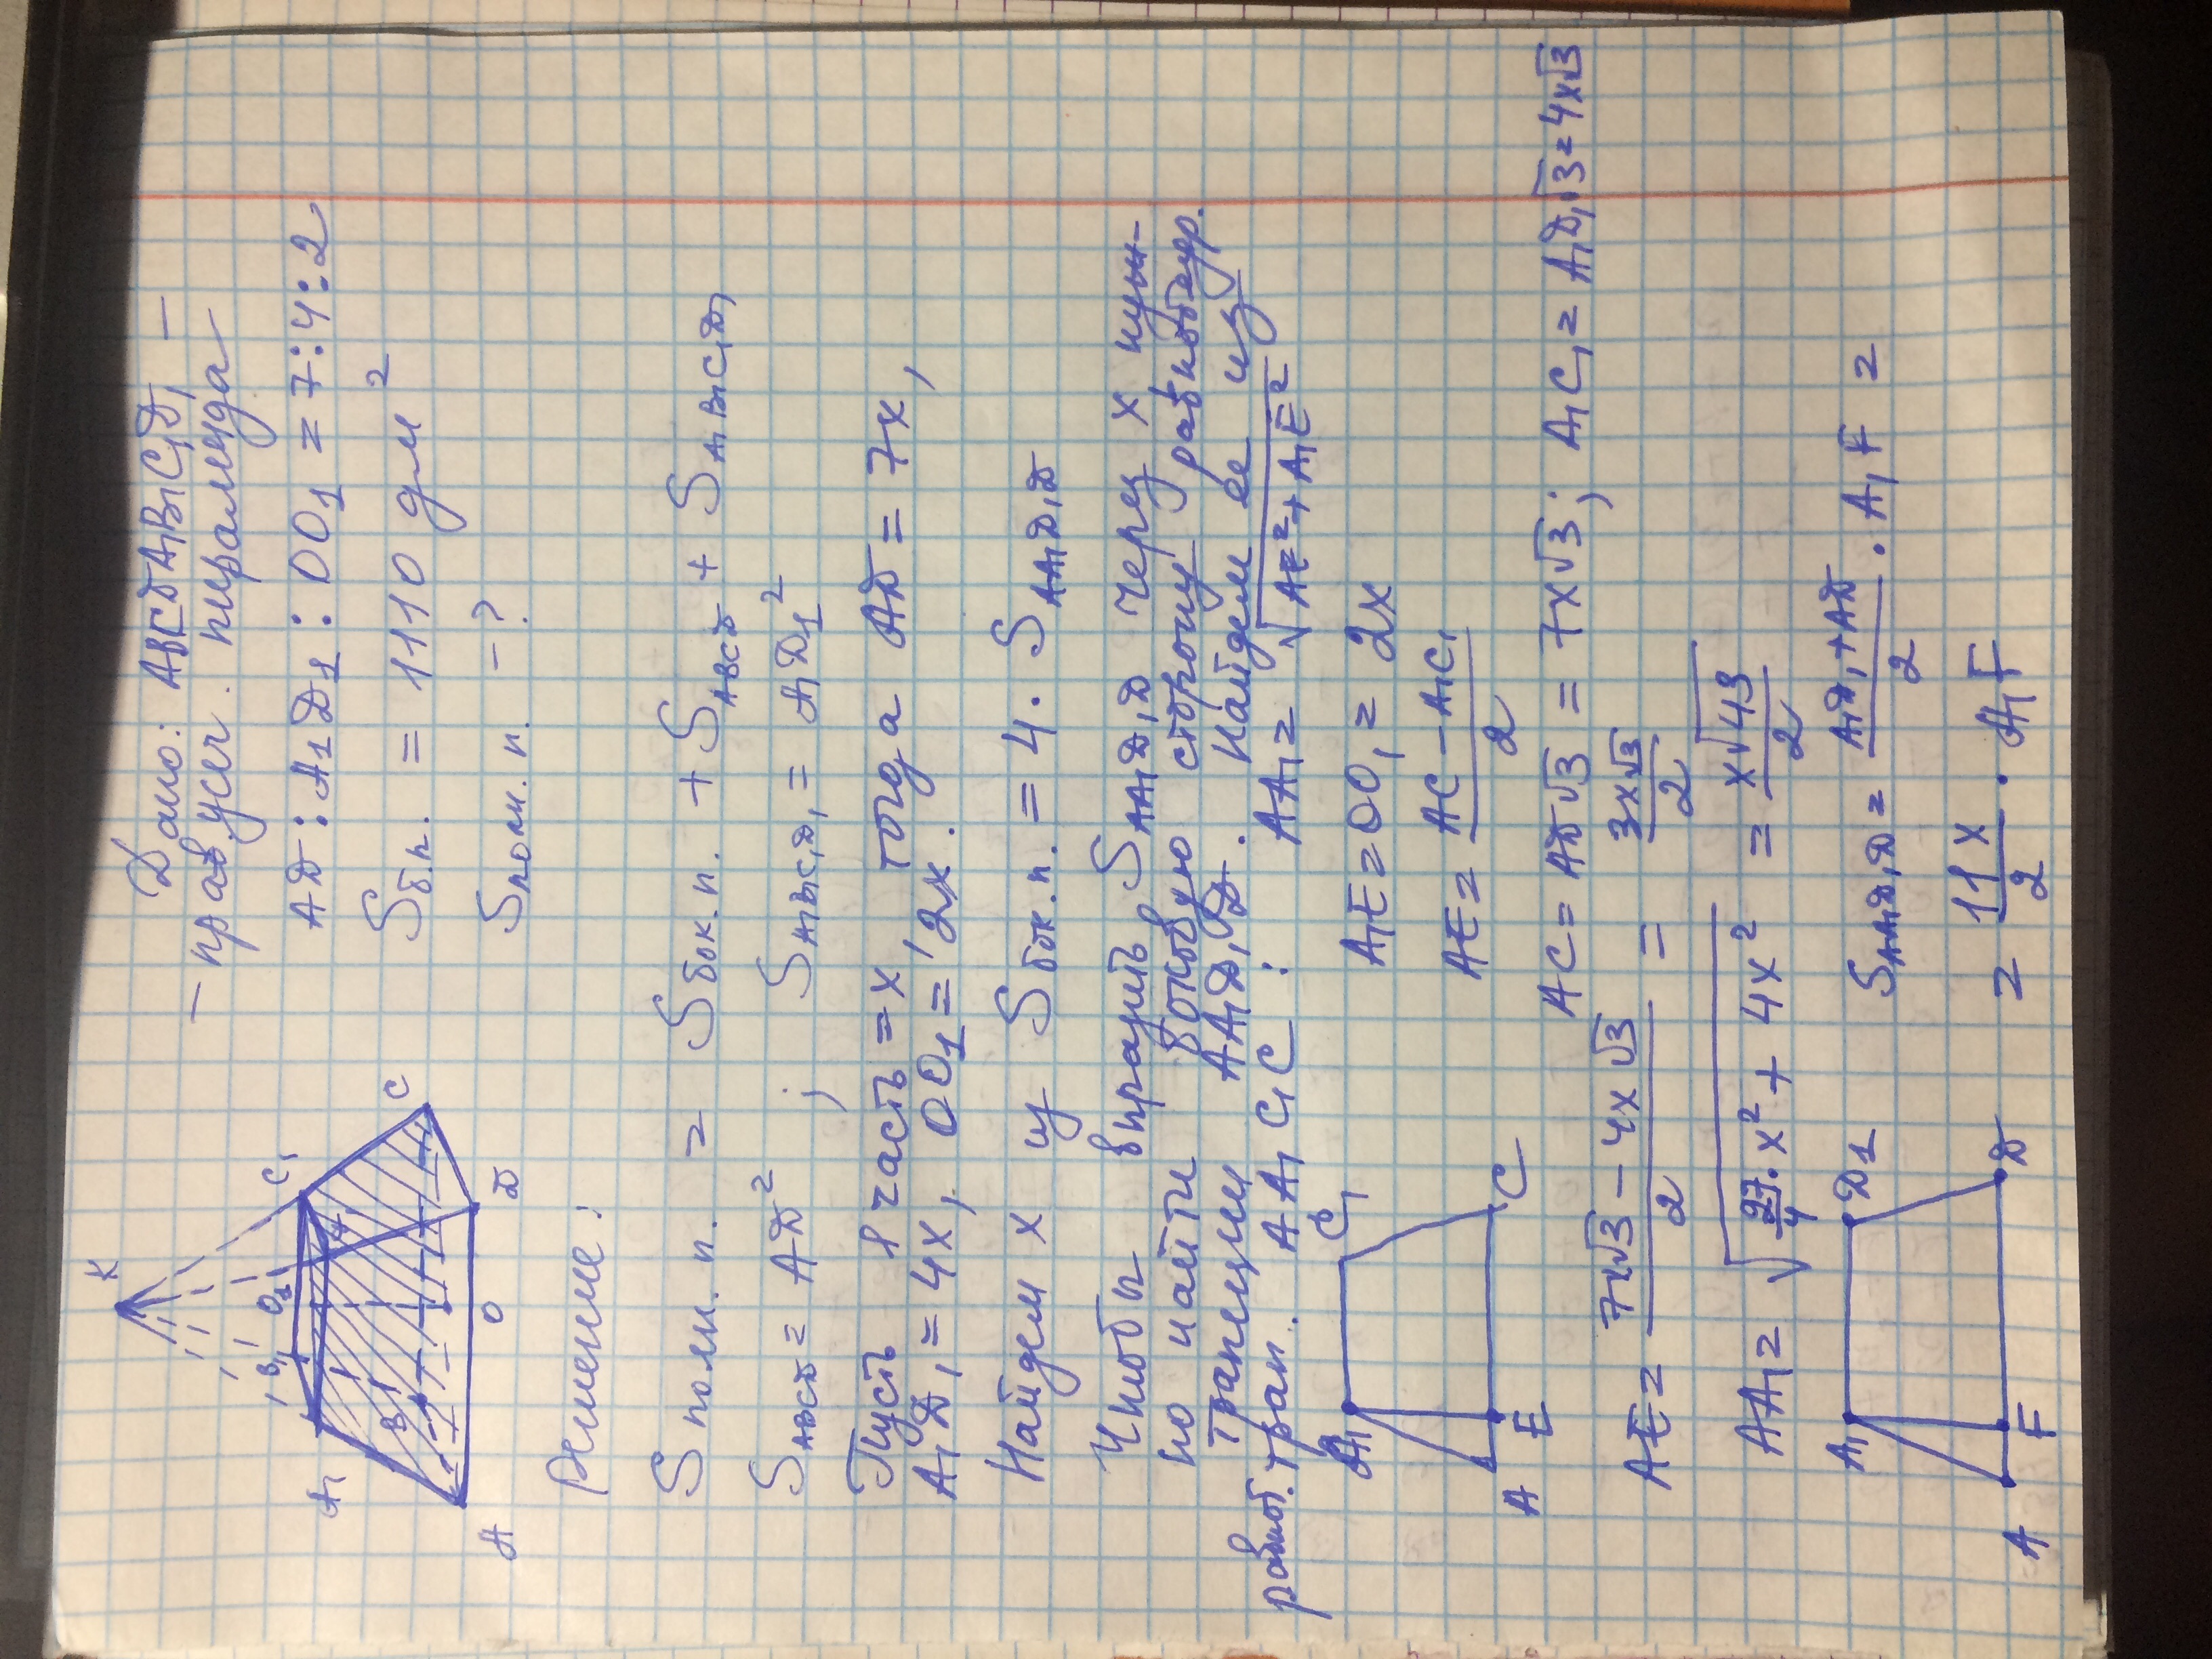 Дано: ABCDA₁B₁C₁D₁ –
– прав. усеч. пирамида
AD : A₁D₁ : OO₁ = 7 : 4 : 2
Sб.п. = 1110 дм²
Sполн. п. – ?
K
A₁ B₁ O₁ C₁
B C
A O D
Решение:
Sполн. п. = Sбок. п. + SABCD + SA₁B₁C₁D₁
SABCD = AD² ; SA₁B₁C₁D₁ = A₁D₁²
Пусть 1 часть = x тогда AD = 7x,
A₁D₁ = 4x, OO₁ = 2x.
Найдем x из Sбок. п. = 4 · SAA₁D₁D
Чтобы выразить SAA₁D₁D через x нуж-
но найти боковую сторону равнобедр.
трапеции AA₁D₁D. Найдем ее из
равноб. трап. AA₁C₁C : AA₁ = √AE² + A₁E²
A₁ C₁
A E C
A₁E = OO₁ = 2x
AE = (AC – A₁C₁)/2
AC = AD√3 = 7x√3 ; A₁C₁ = A₁D₁√3 = 4x√3
AE = (7x√3 – 4x√3)/2 = 3x√3/2
AA₁ = √27/4 · x² + 4x² = x√43/2
A₁ D₁
A F D
SAA₁D₁D = (A₁D₁ + AD)/2 · A₁F =
= 11x/2 · A₁F